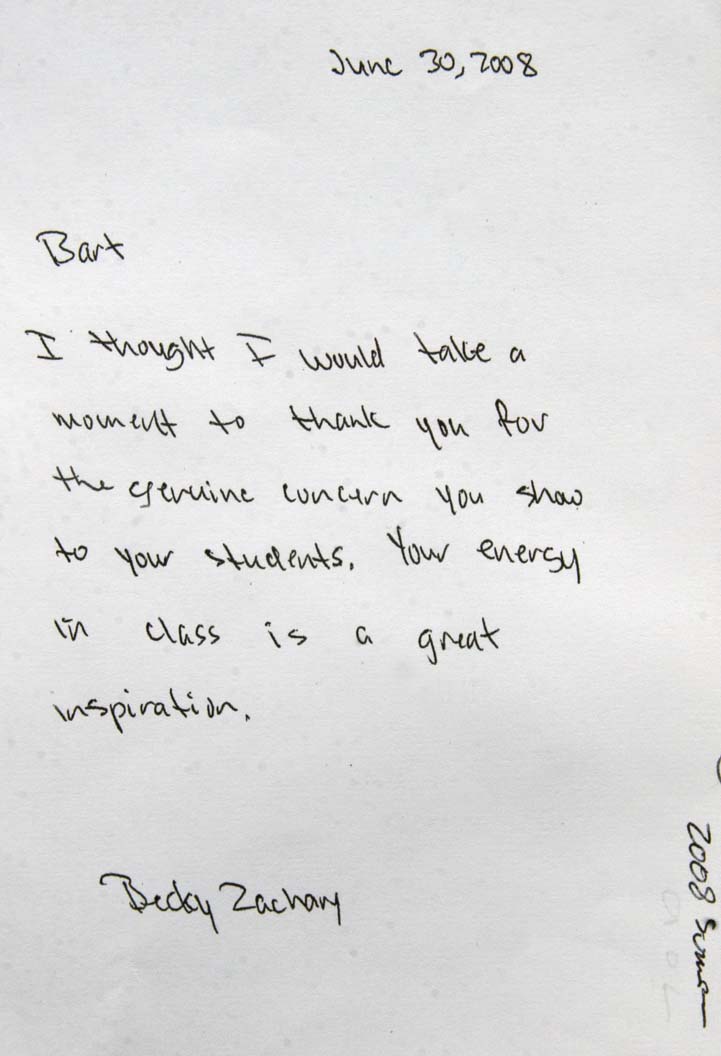 June 30, 2008
Bart
I thought I would take a
moment to thank you for
the genuine concern you show
to your students. Your energy
in class is a great
inspiration.
Becky Zachary
2008 Summer